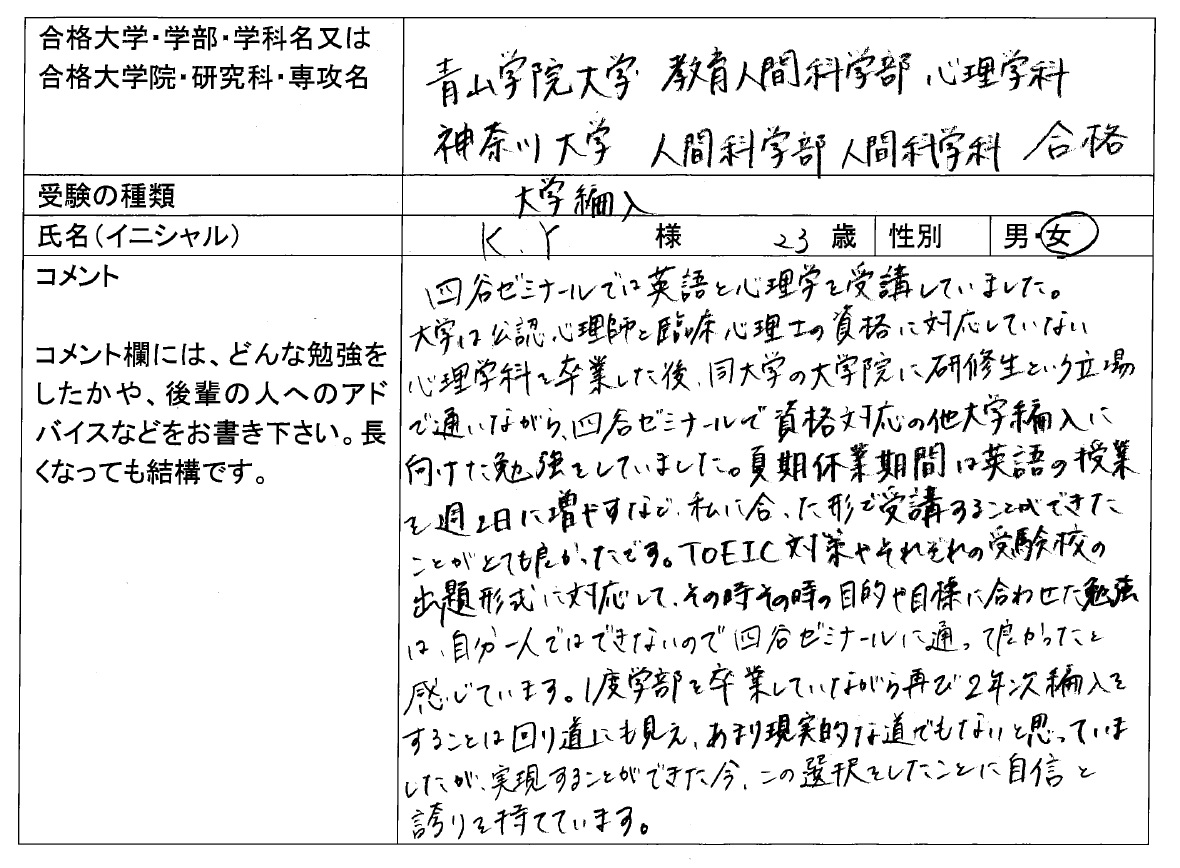 合格大学・学部・学科名又は
合格大学院・研究科・専攻名
青山学院大学 教育人間科学部 心理学科
神奈川大学 人間科学部 人間科学科 合格
受験の種類
大学編入
氏名(イニシャル)
K.Y 様 23 歳 性別 男・女
コメント
コメント欄には、どんな勉強を
したかや、後輩の人へのアド
バイスなどをお書き下さい。長
くなっても結構です。
四谷ゼミナールでは英語と心理学を受講していました。
大学は公認心理師と臨床心理士の資格に対応していない
心理学科を卒業した後、同大学の大学院に研修生という立場
で通いながら、四谷ゼミナールで資格対応の他大学編入に
向けた勉強をしていました。夏期休業期間は英語の授業
を週2日に増やすなど、私に合った形で受講することができた
ことがとても良かったです。TOEIC対策やそれぞれの受験校の
出題形式に対応して、その時その時の目的や目標に合わせた勉強
は、自分一人ではできないので四谷ゼミナールに通って良かったと
感じています。1度学部を卒業していながら再び2年次編入を
することは回り道にも見え、あまり現実的な道でもないと思っていま
したが、実現することができた今、この選択をしたことに自信と
誇りを持てています。